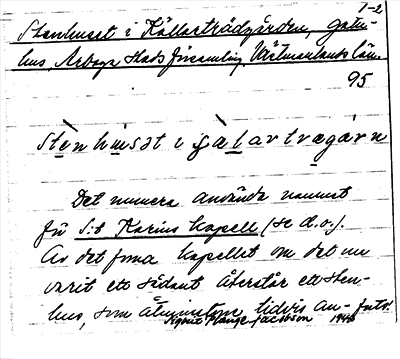 1-2
Stenhuset i Källarträdgården, gatu-
hus, Arboga stads församling, Västmanlands län.
95
Det numera använda namnet
för S:t Karins kapell (se d.o.).
Av det forna kapellet om det nu
varit ett sådant återstår ett sten-
hus, som åtminstone tidvis an-
Jacobson 1946